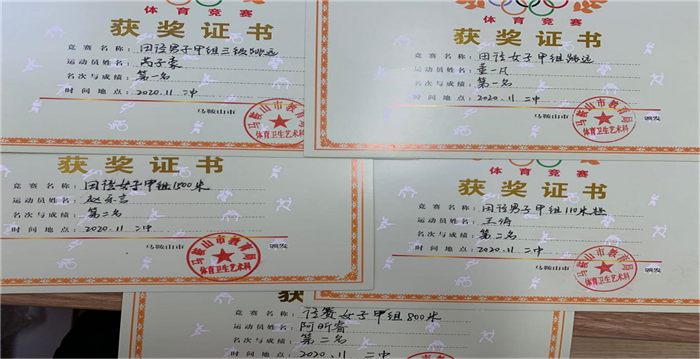 体育竞赛
获奖证书
竞赛名称：田径男子甲组三级跳远
运动员姓名：芮子豪
名次与成绩：第一名
时间地点：2020.11.二中
马鞍山市 颁发
马鞍山市教育局
体育卫生艺术科
体育竞赛
获奖证书
竞赛名称：田径女子甲组跳远
运动员姓名：董一凡
名次与成绩：第一名
时间地点：2020.11.二中
马鞍山市 颁发
马鞍山市教育局
体育卫生艺术科
获奖证书
竞赛名称：田径女子甲组1500米
运动员姓名：赵
名次与成绩：第二名
时间地点：2020.11 二中
马鞍山市 颁发
马鞍山市教育局
体育卫生艺术科
体育竞赛
获奖证书
竞赛名称：田径男子甲组110米栏
运动员姓名：王
名次与成绩：第二名
时间地点：2020.11 二中
马鞍山市 颁发
马鞍山市教育局
体育卫生艺术科
获
竞赛名称：径赛女子甲组800米
运动员姓名：阿昕睿
名次与成绩：第二名
时间地点：2020.11 二中